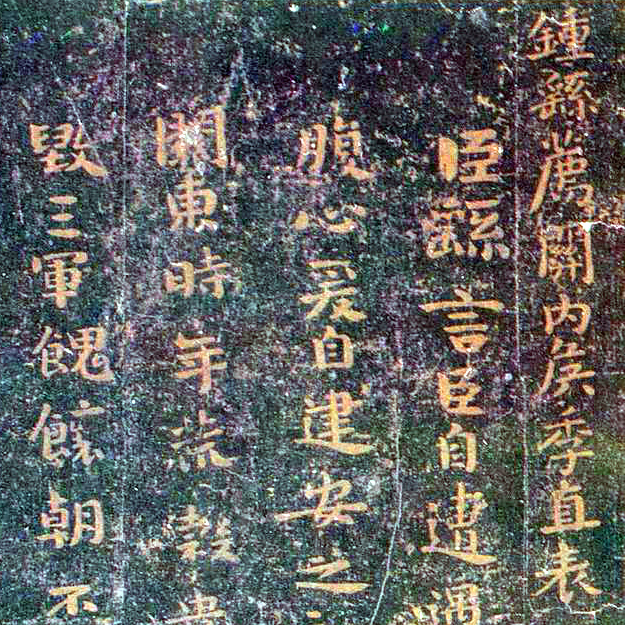 鍾繇薦關內侯季直表
臣繇言臣自遭遇
腹心爰自建安之
關東時年荒穀貴
毀三軍餽饟朝不